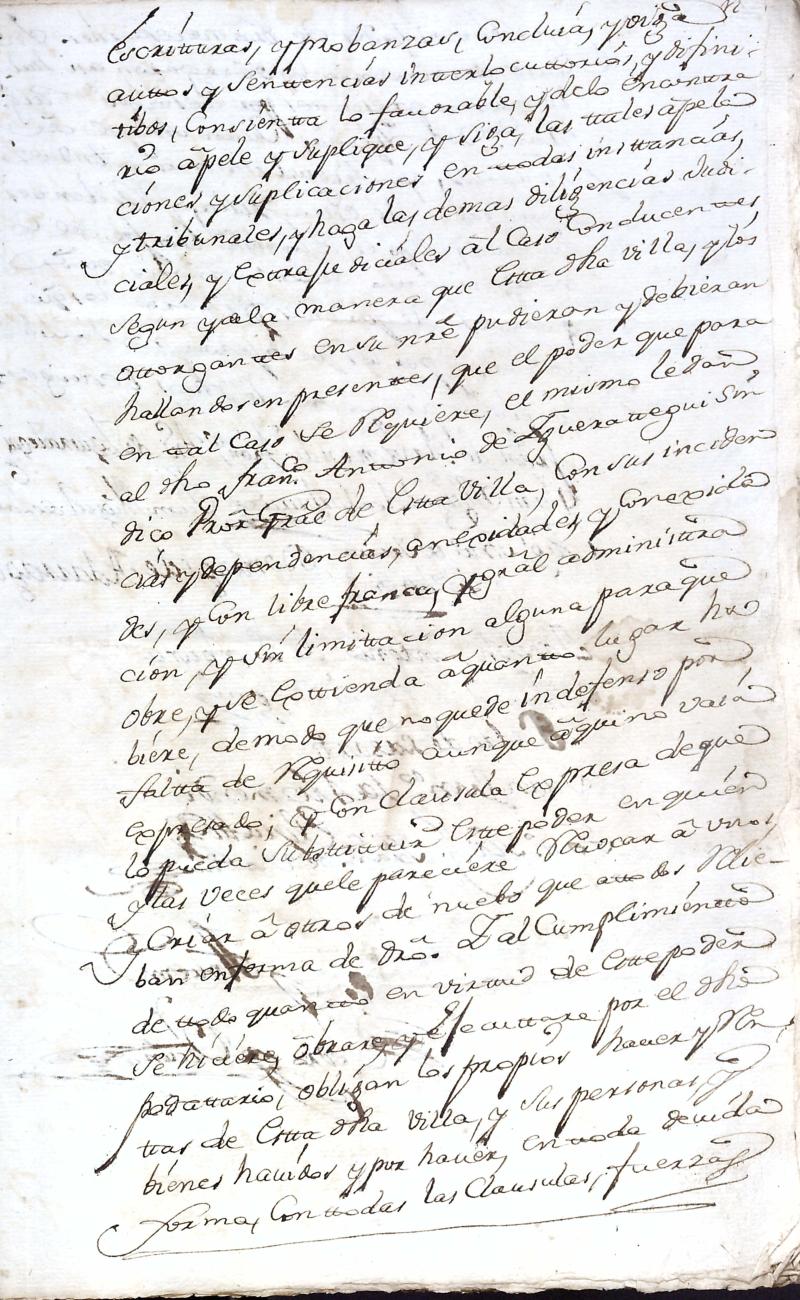 escritturas, y probanzas, concluia, y oiga
auttos y senttencias intterlocuttorios, y difini-
tibos, consientta lo favorable, y delo encontra
rio apele y suplique, y siga, las ttales apela
ciones y suplicaciones en ttodas insttancias,
y tribunales, y haga las demas diligencias Judi-
ciales, y exttrajudiciales al caso conducenttes,
segun y a la manera que estta dha villa, y los
ottorganttes en su nre pudieran y debieran
hallandosen presenttes, que el poder que para
en ttal caso se rquiere, el mismo le dan
al dho franco Anttonio de Yguerattegui Sin
dico Pror Gral de estta villa, con sus inciden
cias y dependencias, anexidades, y conexida
des, y con libre franca, y gral administtra
cion, y sin limittacion alguna para que
obre, y se esttienda a quantto lugar hu
biere, de modo que no quede indefenso por
faltta de rquisitto aunque aqui no vaia
expresado, y con clausula expresa de que
lo pueda substtittuir estte poder en quien
y las veces que le pareciere revocar a unos,
y criar a ottros de nuebo que a ttodos relie-
ban en forma de dro. Y al cumplimientto
de ttodo quantto en virtud de estte poder
se hiciere, obrare, y ejecuttare por el dho
podattario, obligan los propios haver y ren-
ttas de estta dha villa, y sus personas, y
bienes havidos y por haver, en ttoda devida
forma, con ttodas las clausulas, fuerzas